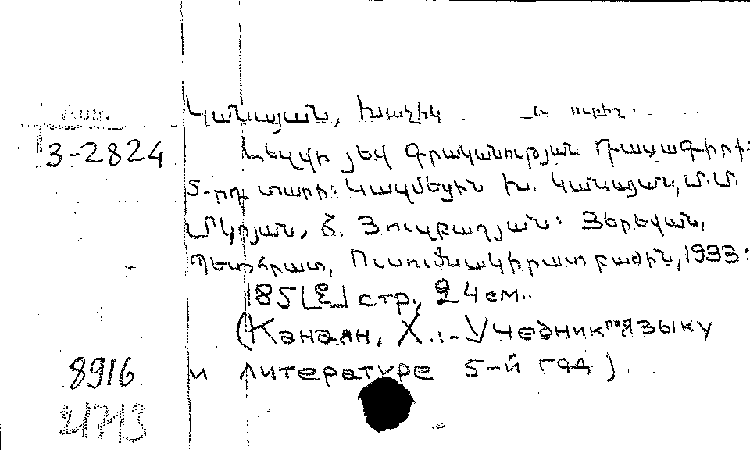 Կանայան, Խաչիկ և ուրիշ.
3-2824
Լեզվի յեվ գրականության դասագիրք:
5-րդ տարի: Կազմեցին Խ. Կանայան, Մ.Մ.
Մկրյան, Յերեվան,
Պետհրատ, Ուսումնակիրառ բաժին, 1933:
185 [2] стр., 24 см.
(Канаян, Х.:-Учебник по языку
8916 и литературе 5-й год).
21713